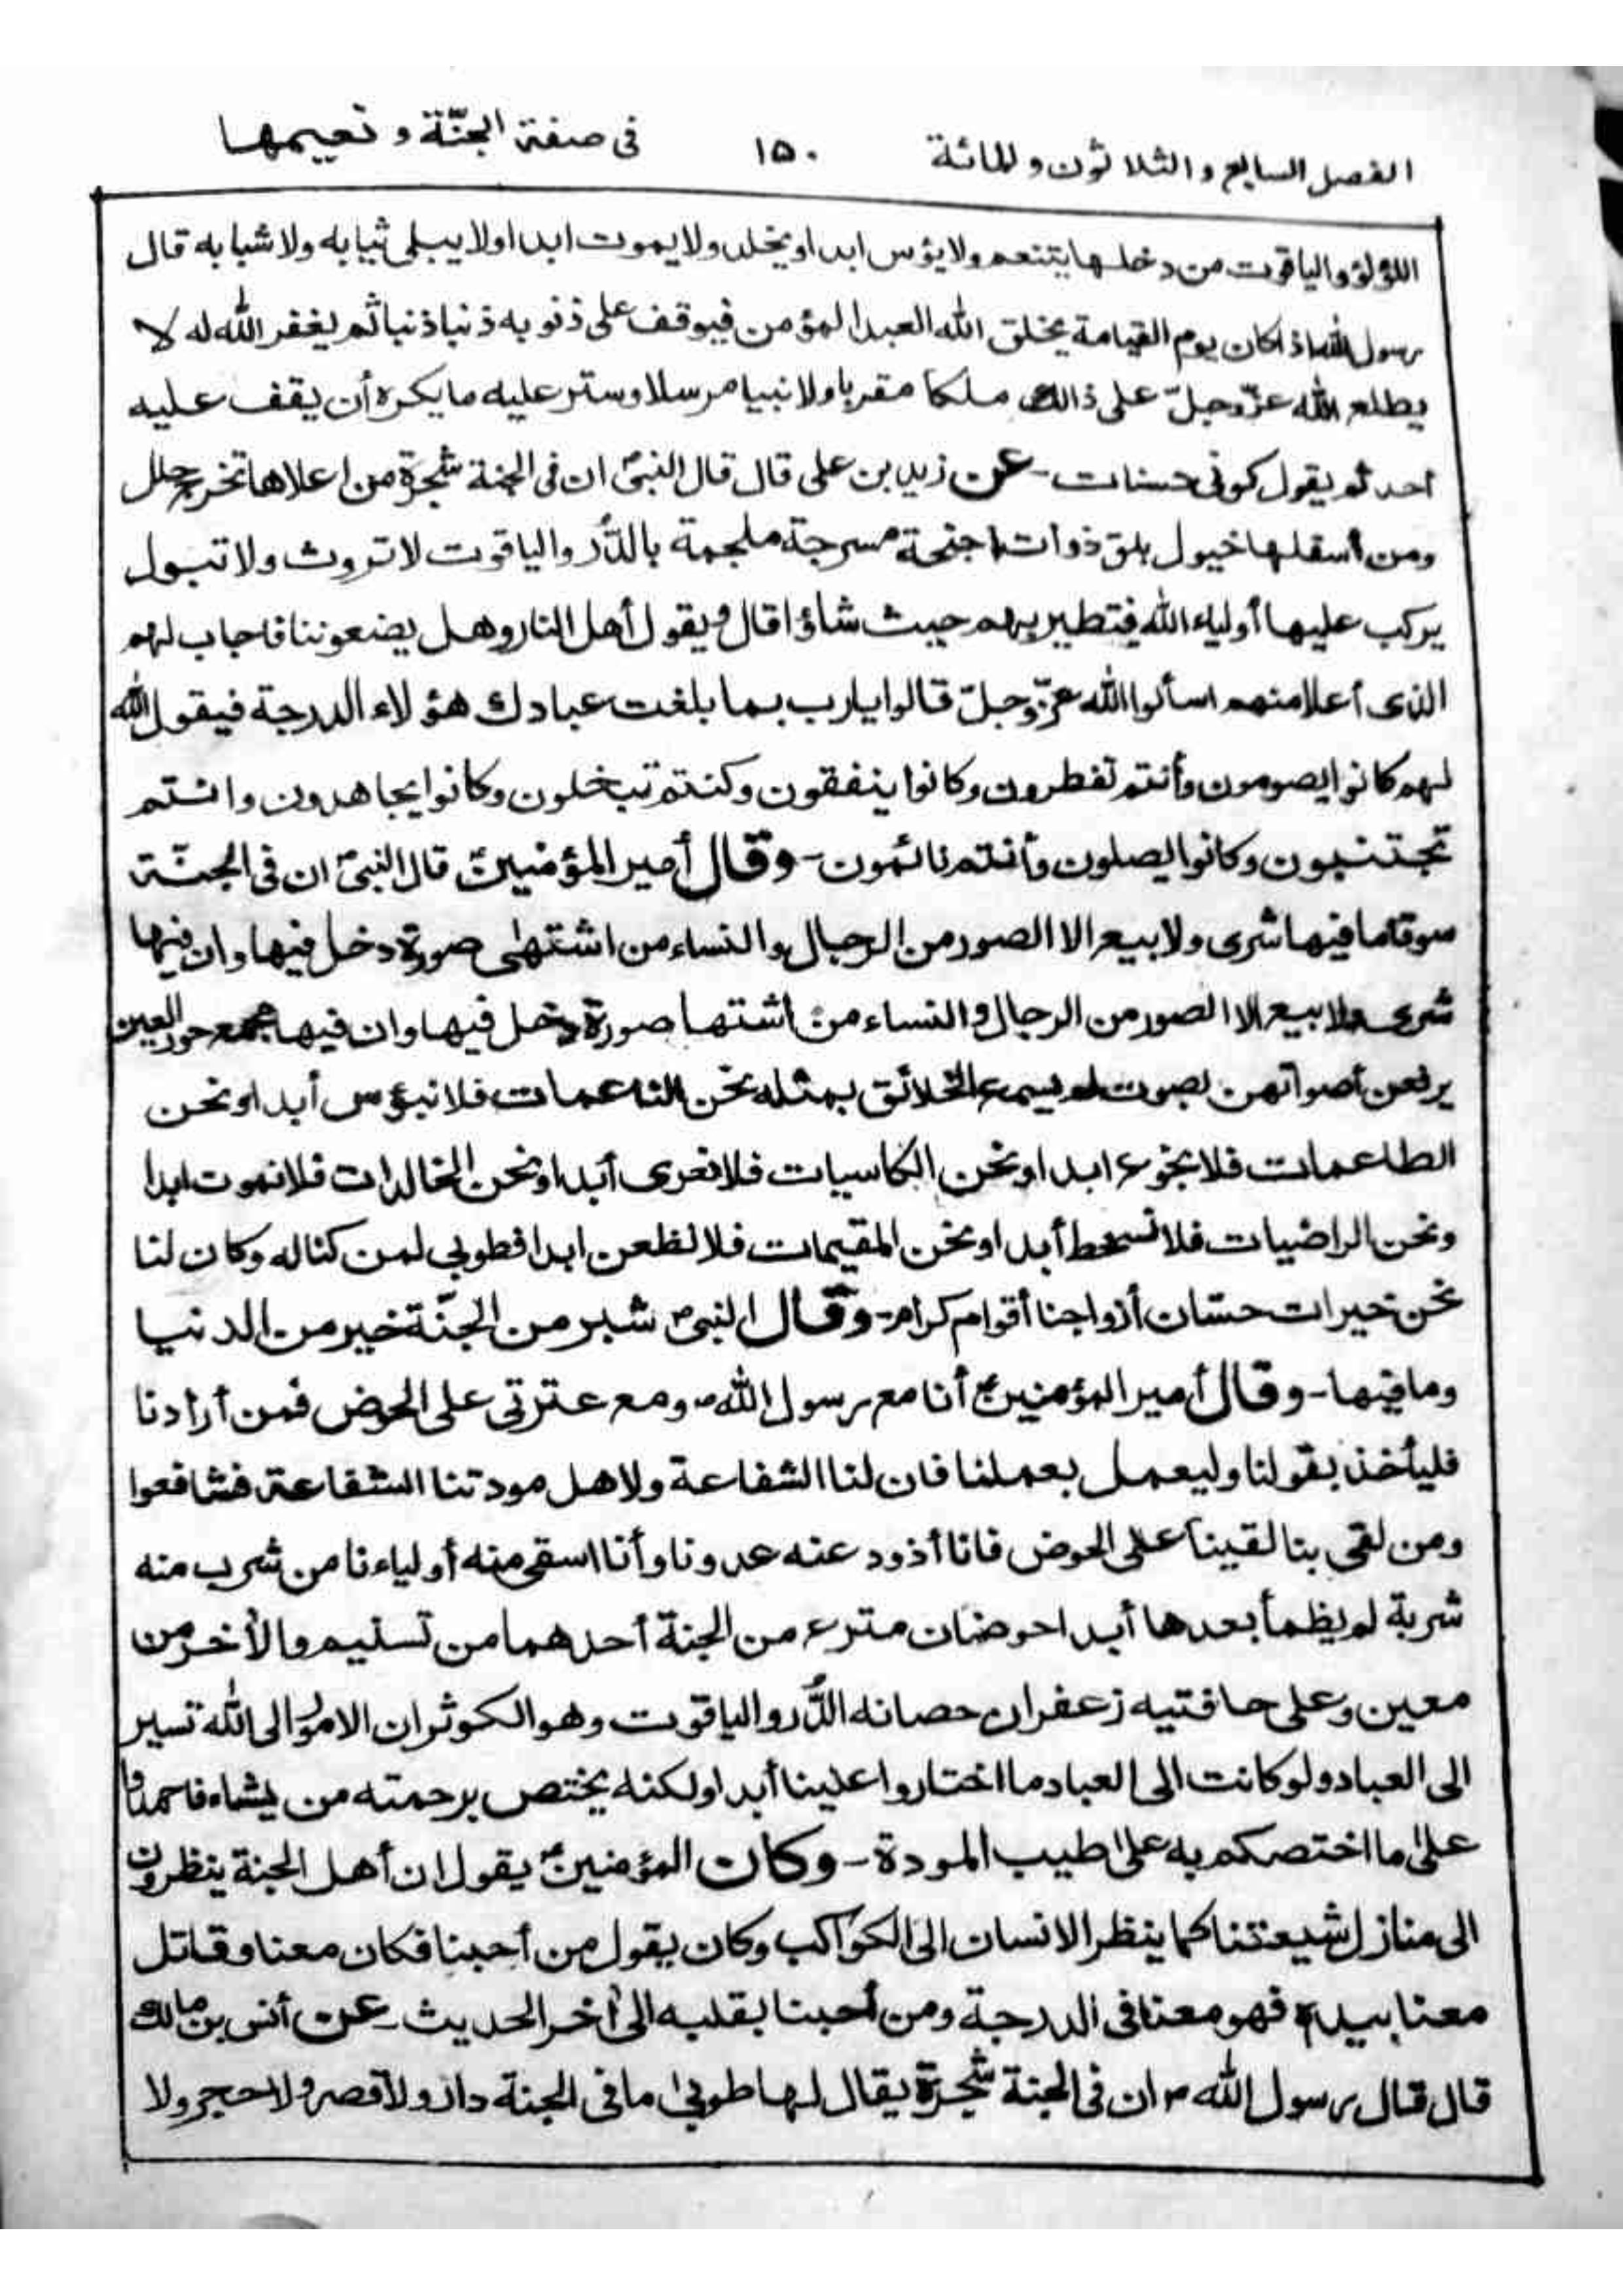 الفصل السابع والثلاثون والمائة ١٥٠ فى صفة الجنّة و نعيمها
اللؤلؤ والياقوت من دخلها يتنعم ولا يؤس ابدا ويخلد ولا يموت ابدا ولا يبلى ثيابه ولا شبابه قال
رسول الله اذا كان يوم القيامة يخلق الله العبد المؤمن فيوقف على ذنوبه ذنبا ذنبا ثم يغفر الله له لا
يطلع الله عزّ وجلّ على ذالك ملكا مقربا ولا نبيا مرسلا وستر عليه ما يكره أن يقف عليه
احد ثم يقول كونى حسنات - عن زيد بن على قال قال النبىؐ ان فى الجنة شجرة من اعلاها تخرج حلل
ومن أسفلها خيول بلق ذوات اجنحة مسرجة ملجمة بالدُّر والياقوت لا تروث ولا تبول
يركب عليها أولياء الله فتطير بهم حيث شاؤا قال ويقول أهل النار وهل يضعوننا فاجاب لهم
الذى أعلا منهم اسألوا الله عزّ وجلّ قالوا يارب بما بلغت عبادك هؤلاء الدرجة فيقول الله
لهم كانوا يصومون وأنتم تفطرون وكانوا ينفقون وكنتم تبخلون وكانوا يجاهدون وانتم
تجتنبون وكانوا يصلون وأنتم نائمون - وقال أمير المؤمنينؑ قال النبىؐ ان فى الجنّة
سوقا ما فيها شرى ولا بيع الا الصور من الرجال والنساء من اشتهى صورة دخل فيها وان فيها
شرى ولا بيع الا الصور من الرجال والنساء من اشتها صورة دخل فيها وان فيها مجمع حور العين
يرفعن أصواتهن بصوت لم يسمع الخلائق بمثله نحن الناعمات فلا نبؤس أبدا ونحن
الطاعمات فلا نجوع ابدا ونحن الكاسيات فلا نعرى أبدا ونحن الخالدات فلا نموت ابدا
ونحن الراضيات فلا نسخط أبدا ونحن المقيمات فلا نظعن ابدا فطوبى لمن كنا له وكان لنا
نحن خيرات حسّان أزواجنا أقوام كرام - وقال النبىؐ شبر من الجنّة خير من الدنيا
وما فيها - وقال أمير المؤمنينؑ أنا مع رسول اللهؐ ومع عترتى على الحوض فمن أرادنا
فليأخذ بقولنا وليعمل بعملنا فان لنا الشفاعة ولاهل مودتنا الشفاعة فشافعوا
ومن لقى بنا لقينا على الحوض فانا أذود عنه عدونا وأنا اسقى منه أولياءنا من شرب منه
شربة لم يظمأ بعدها أبدا حوضان مترع من الجنة أحدهما من تسنيم والأخر من
معين وعلى حافتيه زعفران حصانه الدُّر والياقوت وهو الكوثر ان الامور الى الله تسير
الى العباد ولو كانت الى العباد ما اختاروا علينا أبدا ولكنه يختص برحمته من يشاء فاحمدوا
على ما اختصكم به على طيب المودة - وكان المؤمنينؑ يقول ان أهل الجنة ينظرون
الى منازل شيعتنا كما ينظر الانسان الى الكواكب وكان يقول من أحبنا فكان معنا وقاتل
معنا بيده فهو معنا فى الدرجة ومن أحبنا بقلبه الى أخر الحديث - عن أنس بن مالك
قال قال رسول اللهؐ ان فى الجنة شجرة يقال لها طوبى ما فى الجنة دار ولا قصر ولا حجر ولا